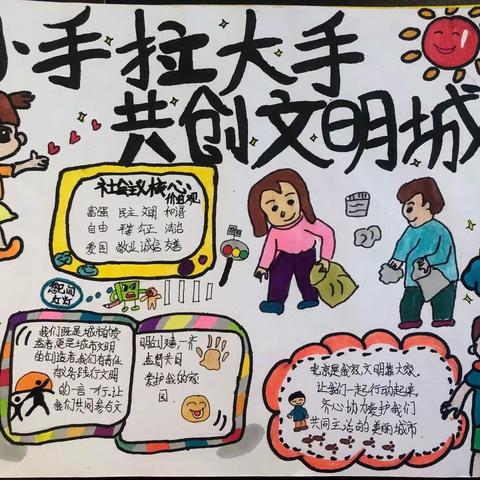 小手拉大手
共创文明城
社会主义核心
价值观
富强 民主 文明 和谐
自由 平等 公正 法治
爱国 敬业 诚信 友善
我们既是城市的建
造者,更是城市文明
的创造者,我们有责任
践行文明
的一言一行,让
我们共同
一齐
监督共同
爱护我的家
园
北京是我家,文明靠大家,
让我们一起行动起来,
齐心协力爱护我们
共同生活的美丽城市.